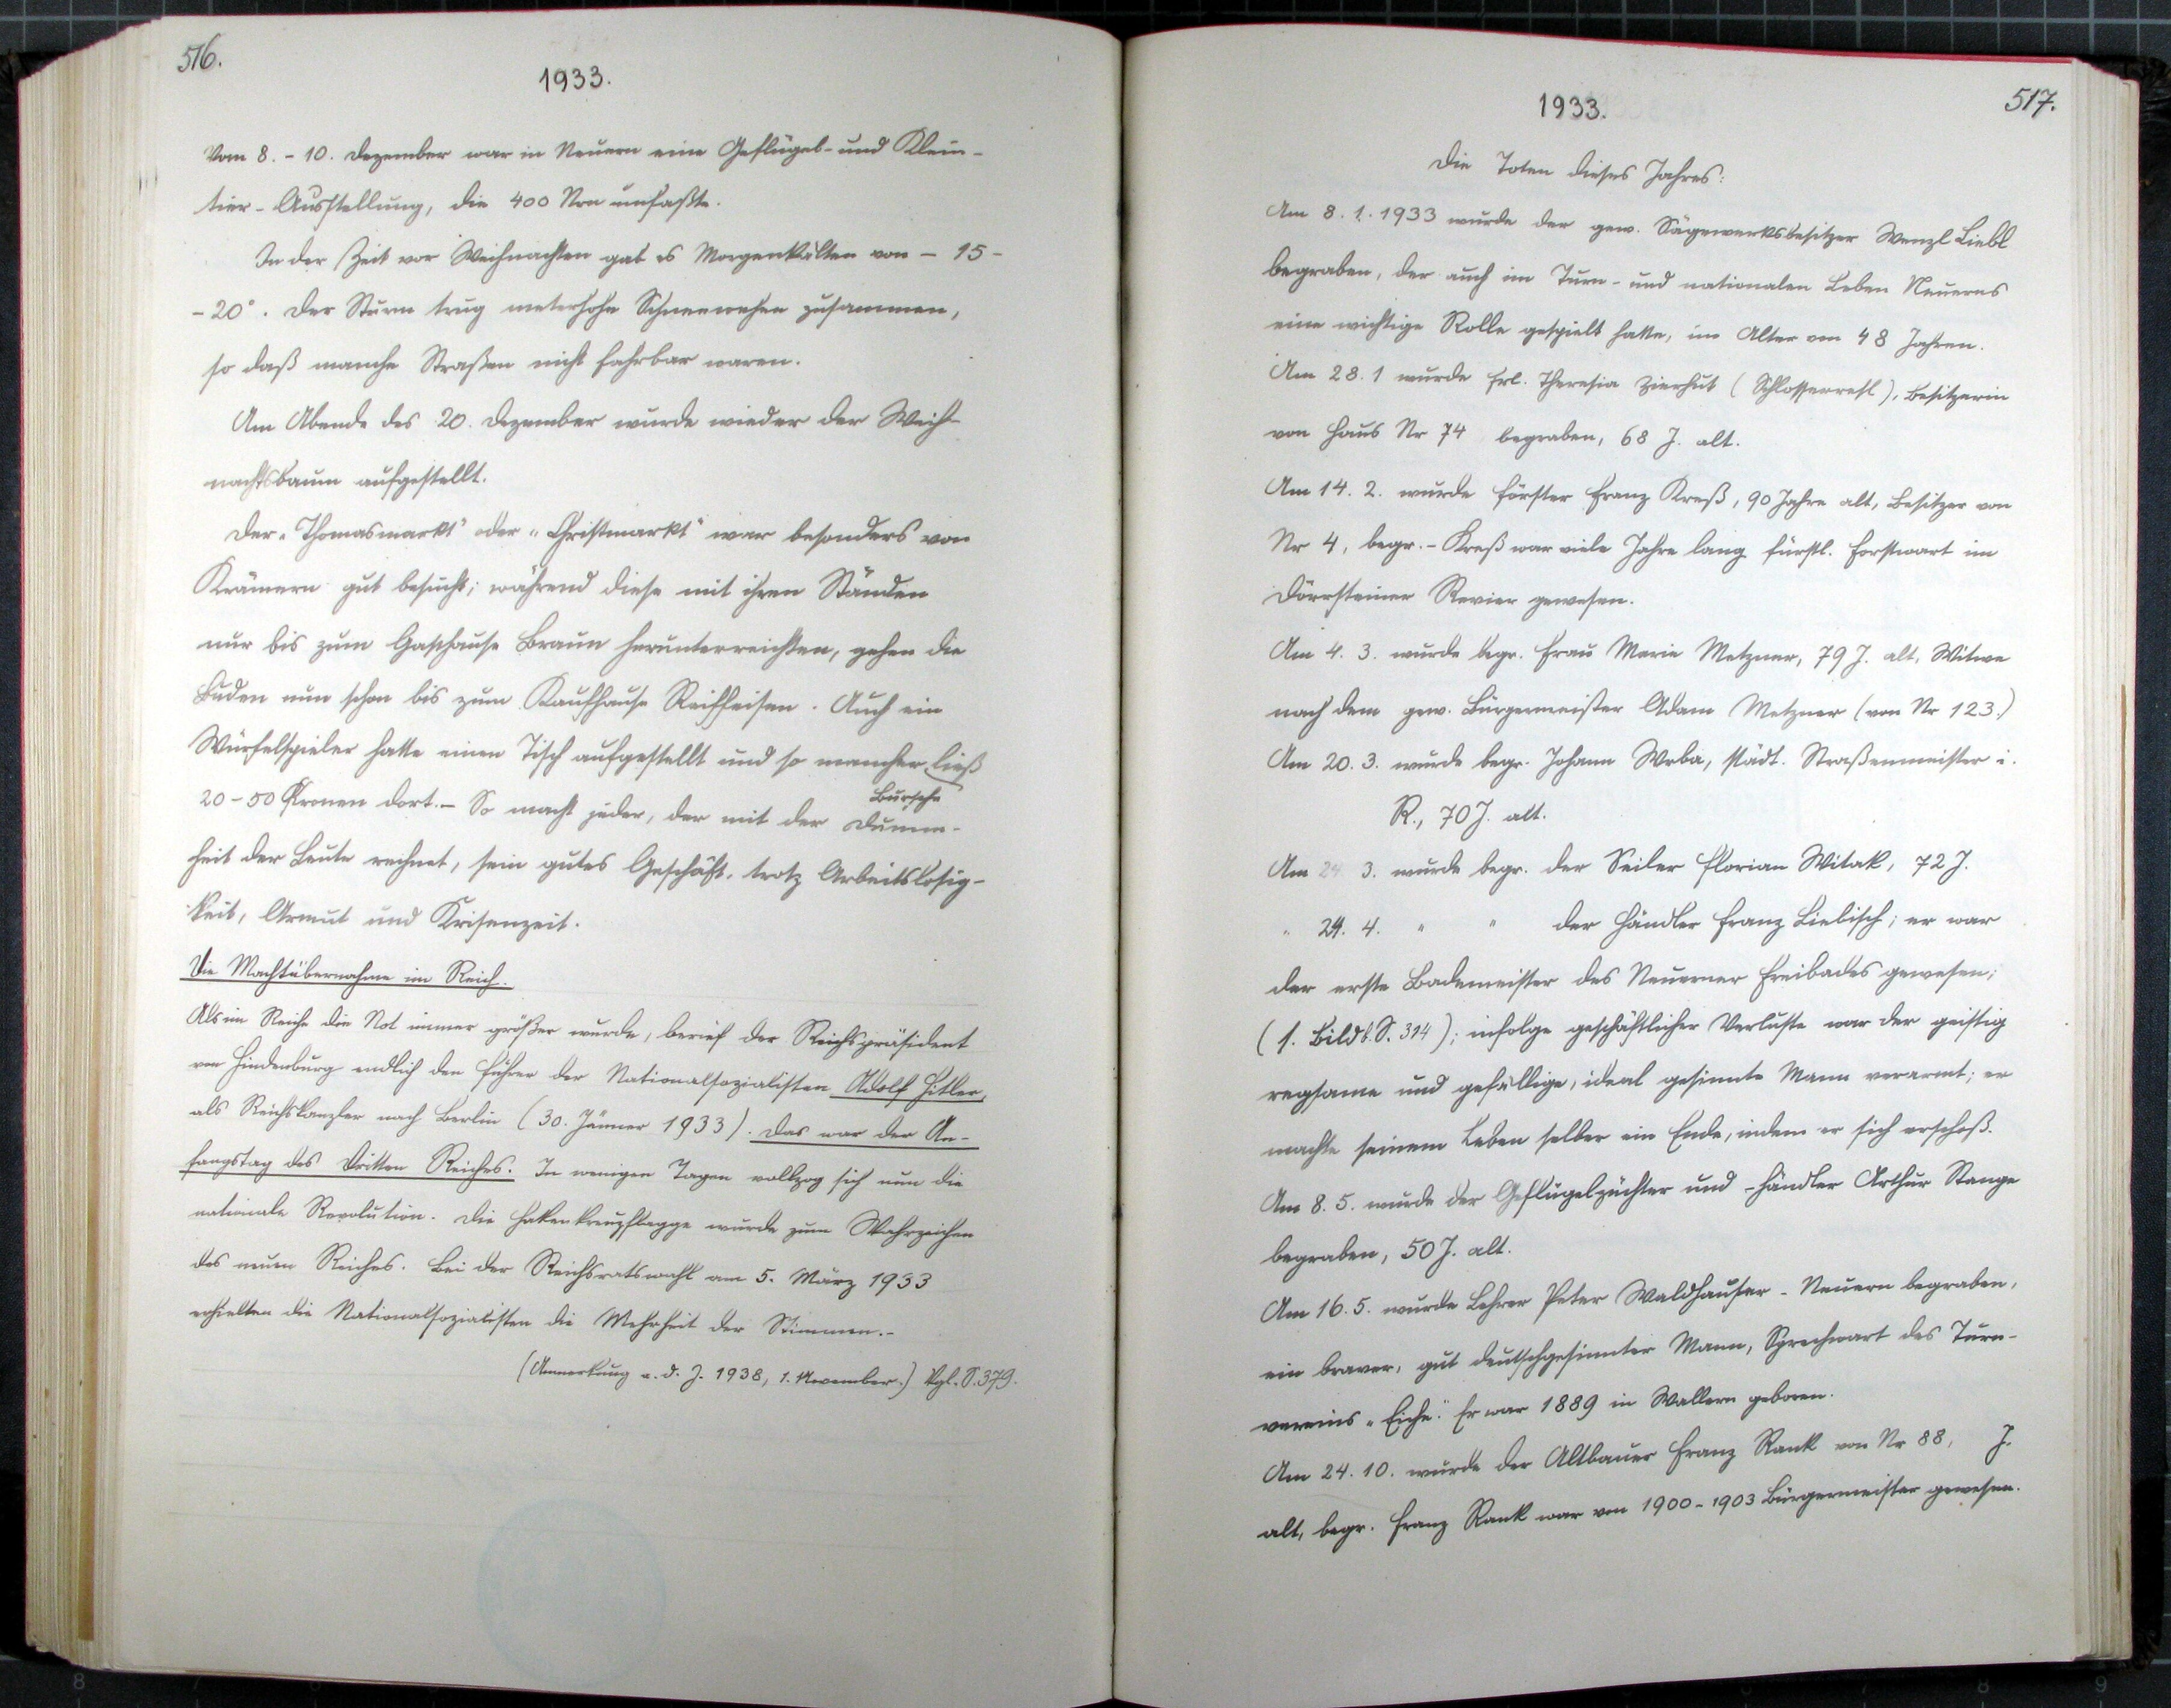 516.
1933.
Vom 8. - 10. Dezember war in Neuern eine Geflügel- und Klein-
tier-Ausstellung, die 400 Nrn umfaßte.
In der Zeit vor Weihnachten gab es Morgenkälten von - 15 -
- 20°. Der Sturm trug meterhohe Schneewehen zusammen,
so daß manche Straßen nicht fahrbar waren.
Am Abende des 20. Dezember wurde wieder der Weih-
nachtsbaum aufgestellt.
Der „Thomasmarkt" oder „Christmarkt" war besonders von
Krämern gut besucht; während diese mit ihren Ständen
nur bis zum Gasthause Braun herunterreichten, gehen die
Buden nun schon bis zum Kaufhause Raiffeisen. Auch ein
Würfelspieler hatte einen Tisch aufgestellt und so mancher ließ
Bursche
20-50 Kronen dort. - So macht jeder, der mit der Dumm-
heit der Leute rechnet, sein gutes Geschäft, trotz Arbeitslosig-
keit, Armut und Krisenzeit.
Die Machtübernahme im Reich.
Als im Reiche die Not immer größer wurde, berief der Reichspräsident
von Hindenburg endlich den Führer der Nationalsozialisten Adolf Hitler,
als Reichskanzler nach Berlin (30. Jänner 1933). Das war der An-
fangstag des Dritten Reiches. In wenigen Tagen vollzog sich nun die
nationale Revolution. Die Hakenkreuzflagge wurde zum Wahrzeichen
des neuen Reiches. Bei der Reichsratswahl am 5. März 1933
erhielten die Nationalsozialisten die Mehrheit der Stimmen. -
(Anmerkung a. d. J. 1938, 1. November.) Vgl. S. 379.
517.
1933.
Die Toten dieses Jahres:
Am 8. 1. 1933 wurde der gew. Sägewerksbesitzer Wenzl Liebl
begraben, der auch im Turn- und nationalen Leben Neuerns
eine wichtige Rolle gespielt hatte, im Alter von 48 Jahren.
Am 28. 1 wurde Frl. Theresia Zierhut (Schlosserresl), Besitzerin
von Haus Nr 74 begraben, 68 J. alt.
Am 14. 2. wurde Förster Franz Kreß, 90 Jahre alt, Besitzer von
Nr 4, begr. - Kreß war viele Jahre lang fürstl. Forstwart im
Dörrsteiner Revier gewesen.
Am 4. 3. wurde begr. Frau Marie Metzner, 79 J. alt, Witwe
nach dem gew. Bürgermeister Adam Metzner (von Nr 123.)
Am 20. 3. wurde begr. Johann Wrba, städt. Straßenmeister i.
R., 70 J. alt.
Am 24 3. wurde begr. der Seiler Florian Witak, 72 J.
" 24. 4. " " der Händler Franz Liebisch; er war
der erste Bademeister des Neuerner Freibades gewesen;
(s. Bild b. S. 314); infolge geschäftlicher Verluste war der geistig
regsame und gefällige, ideal gesinnte Mann verarmt; er
machte seinem Leben selber ein Ende, indem er sich erschoß.
Am 8. 5. wurde der Geflügelzüchter und -händler Arthur Stange
begraben, 50 J. alt.
Am 16. 5. wurde Lehrer Peter Waldhauser - Neuern begraben,
ein braver, gut deutschgesinnter Mann, Sprechwart des Turn-
vereins „Eiche." Er war 1889 in Wallern geboren.
Am 24. 10. wurde der Altbauer Franz Rank von Nr 88, J.
alt, begr. Franz Rank war von 1900-1903 Bürgermeister gewesen.